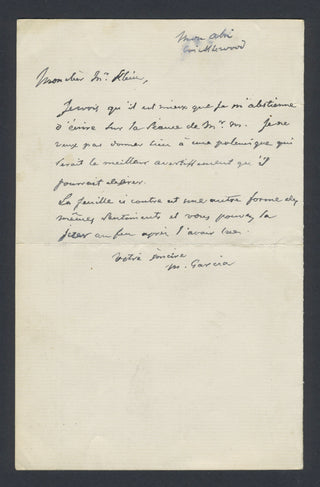 Mon abri
Cricklewood
Mon cher Mr. Klein,
Je crois qu'il est mieux que je m'abstienne
d'écrire sur la de Mr. M. Je ne
veux pas donner lieu à une polémique qui
serait le meilleur avertissement qu'il
pourrait désirer.
La feuille ci contre est une autre forme des
mêmes sentiments et vous pouvez la
jeter au feu après l'avoir lue.
Votre sincère
M. Garcia